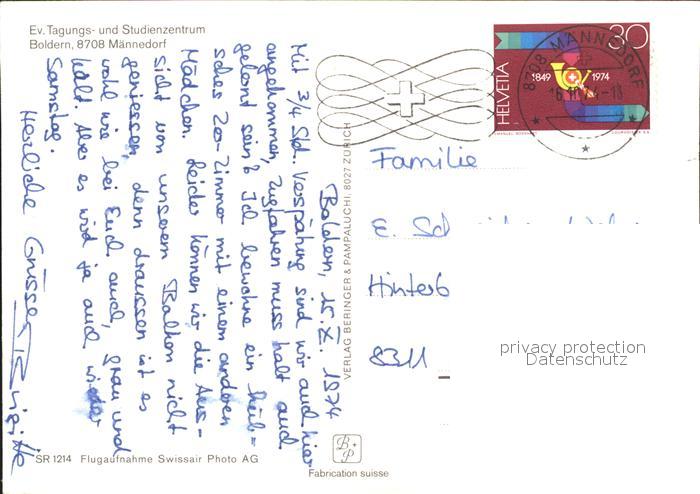 Ev. Tagungs- und Studienzentrum
Boldern, 8708 Männedorf
Boldern, 15. X. 1974
Mit 3/4 Std. Verspätung sind wir auch hier
angekommen, Zugfahren muss halt auch
gelernt sein! Ich bewohne ein hüb-
sches 2er-Zimmer mit einem anderen
Mädchen. Leider können wir die Aus-
sicht von unserem Balkon nicht
geniessen, denn draussen ist es
wohl wie bei Euch auch, grau und
kalt. Aber es wird ja auch wieder
Samstag.
Herzliche Grüsse
Brigitte
SR 1214 Flugaufnahme Swissair Photo AG
VERLAG BERINGER & PAMPALUCHI, 8027 ZÜRICH
B+P
Fabrication suisse
HELVETIA
30
1849 1974
8708 MÄNNEDORF
Familie
E. Sch
Hinterb
8311
privacy protection
Datenschutz